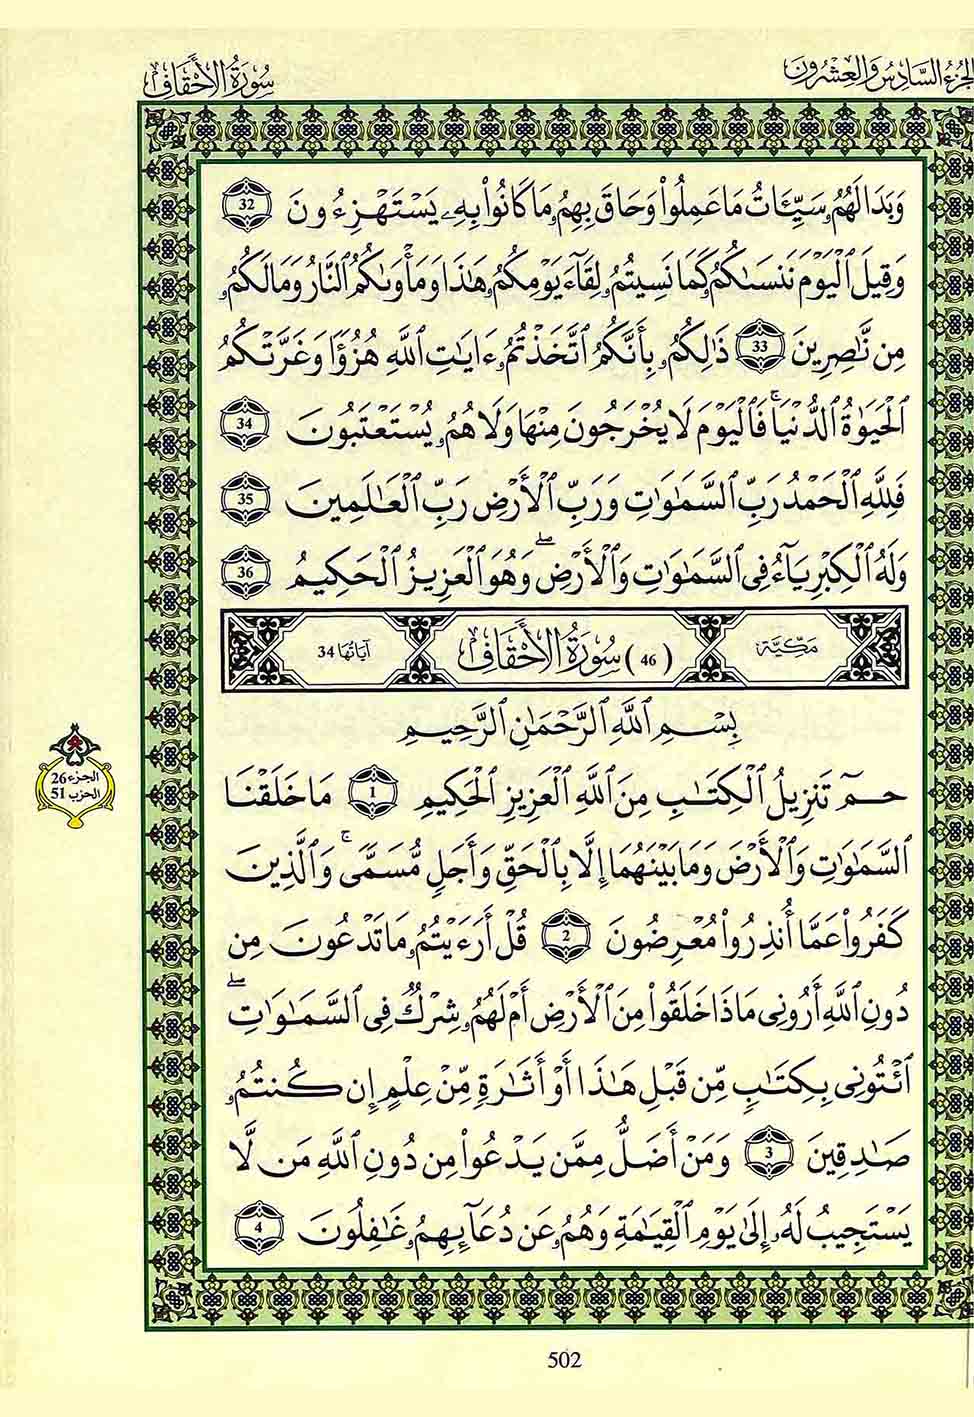 الجزء السادس والعشرون
سُورَةُ الأَحْقَافِ
وَبَدَا لَهُمُۥ سَيِّـَٔاتُ مَا عَمِلُوا۟ وَحَاقَ بِهِمُۥ مَا كَانُوا۟ بِهِۦ يَسْتَهْزِءُونَ 32
وَقِيلَ ٱلْيَوْمَ نَنسَىٰكُمُۥ كَمَا نَسِيتُمُۥ لِقَآءَ يَوْمِكُمُۥ هَٰذَا وَمَأْوَىٰكُمُ ٱلنَّارُ وَمَا لَكُمُۥ
مِن نَّٰصِرِينَ 33 ذَٰلِكُمُۥ بِأَنَّكُمُ ٱتَّخَذْتُمُۥ ءَايَٰتِ ٱللَّهِ هُزُؤًا وَغَرَّتْكُمُ
ٱلْحَيَوٰةُ ٱلدُّنْيَا ۚ فَٱلْيَوْمَ لَا يُخْرَجُونَ مِنْهَا وَلَا هُمُۥ يُسْتَعْتَبُونَ 34
فَلِلَّهِ ٱلْحَمْدُ رَبِّ ٱلسَّمَٰوَٰتِ وَرَبِّ ٱلْأَرْضِ رَبِّ ٱلْعَٰلَمِينَ 35
وَلَهُ ٱلْكِبْرِيَآءُ فِى ٱلسَّمَٰوَٰتِ وَٱلْأَرْضِ ۖ وَهُوَ ٱلْعَزِيزُ ٱلْحَكِيمُ 36
مَكِّيَّة (46) سُورَةُ الأَحْقَافِ آيَاتُهَا 34
بِسْمِ ٱللَّهِ ٱلرَّحْمَٰنِ ٱلرَّحِيمِ
حمٓ تَنزِيلُ ٱلْكِتَٰبِ مِنَ ٱللَّهِ ٱلْعَزِيزِ ٱلْحَكِيمِ 1 مَا خَلَقْنَا
ٱلسَّمَٰوَٰتِ وَٱلْأَرْضَ وَمَا بَيْنَهُمَا إِلَّا بِٱلْحَقِّ وَأَجَلٍ مُّسَمًّى ۚ وَٱلَّذِينَ
كَفَرُوا۟ عَمَّا أُنذِرُوا۟ مُعْرِضُونَ 2 قُلْ أَرَءَيْتُمُۥ مَا تَدْعُونَ مِن
دُونِ ٱللَّهِ أَرُونِى مَاذَا خَلَقُوا۟ مِنَ ٱلْأَرْضِ أَمْ لَهُمُۥ شِرْكٌ فِى ٱلسَّمَٰوَٰتِ ۖ
ٱئْتُونِى بِكِتَٰبٍ مِّن قَبْلِ هَٰذَا أَوْ أَثَٰرَةٍ مِّنْ عِلْمٍ إِن كُنتُمُۥ
صَٰدِقِينَ 3 وَمَنْ أَضَلُّ مِمَّن يَدْعُوا۟ مِن دُونِ ٱللَّهِ مَن لَّا
يَسْتَجِيبُ لَهُۥ إِلَىٰ يَوْمِ ٱلْقِيَٰمَةِ وَهُمُۥ عَن دُعَآئِهِمُۥ غَٰفِلُونَ 4
الجزء 26
الحزب 51
502